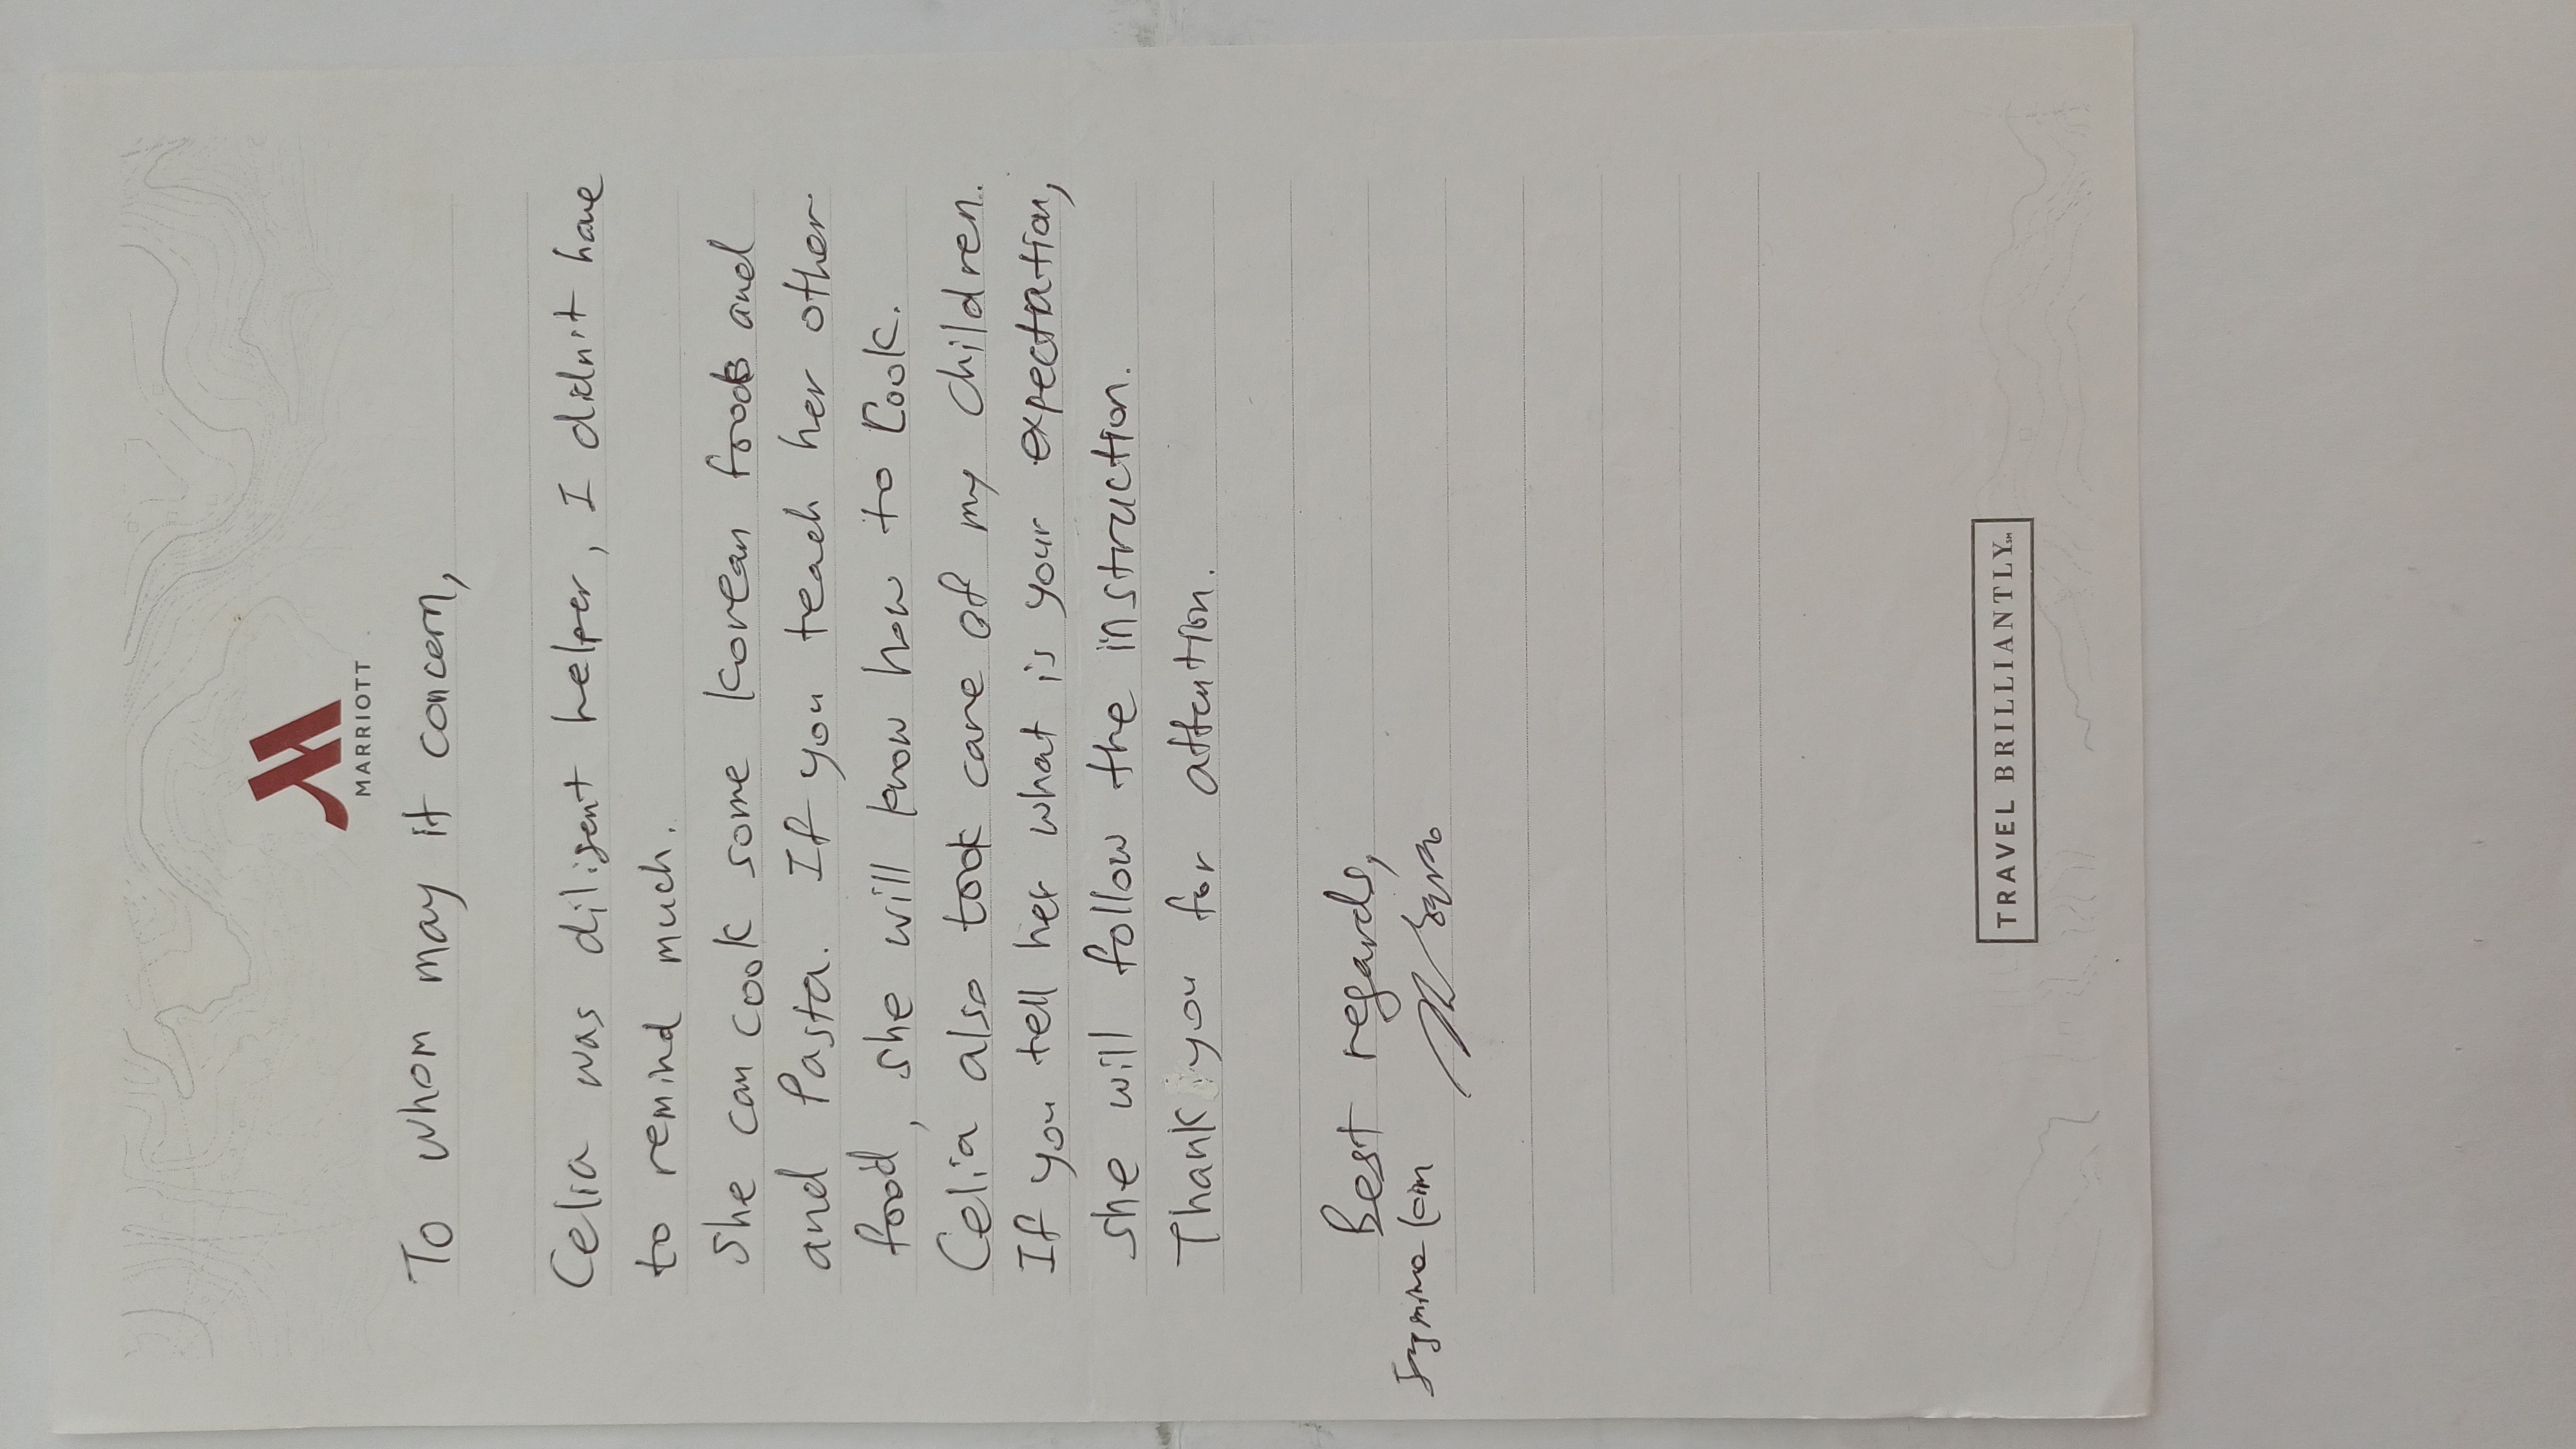 MARRIOTT
To whom may it concern,
Celia was diligent helper, I didn't have
to remind much.
She can cook some korean foods and
and Pasta. If you teach her other
food, she will know how to Cook.
Celia also took care of my children.
If you tell her what is your expectation,
she will follow the instruction.
Thank you for attention.
Best regards,
TRAVEL BRILLIANTLY℠